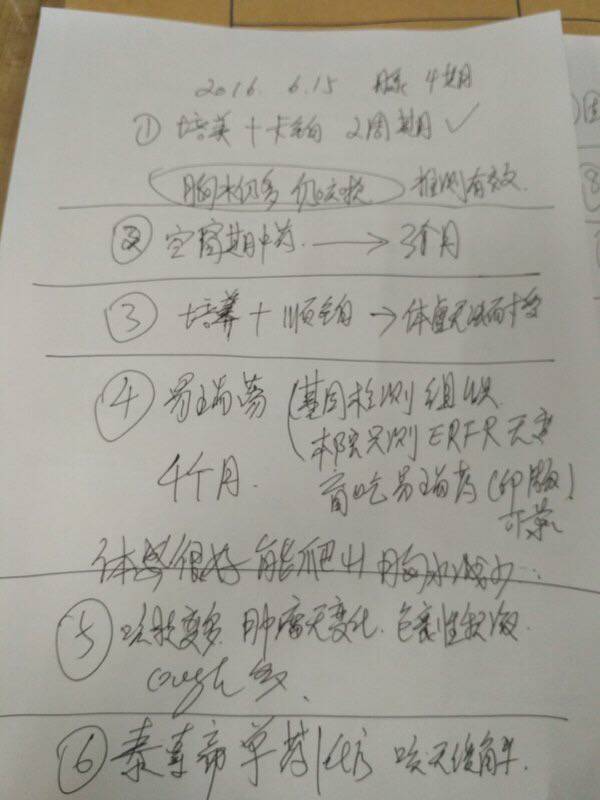 2016. 6.15 腺 4期
① 培美 + 卡铂 2周期 ✓
胸水仍多 仍咳嗽 推测有效.
② 空窗期中药. → 3个月
③ 培美 + 顺铂 → 体虚无法耐受
④ 易瑞沙 (基因检测 组织
本院只测 ERFR 无突
4个月. 盲吃易瑞沙 (印度)
体感很好 能爬山 胸水减少..
⑤ 咳嗽变多. 肿瘤无变化. 包裹性积液.
cough 多.
⑥ 泰素帝单药 化疗 咳无缓解.